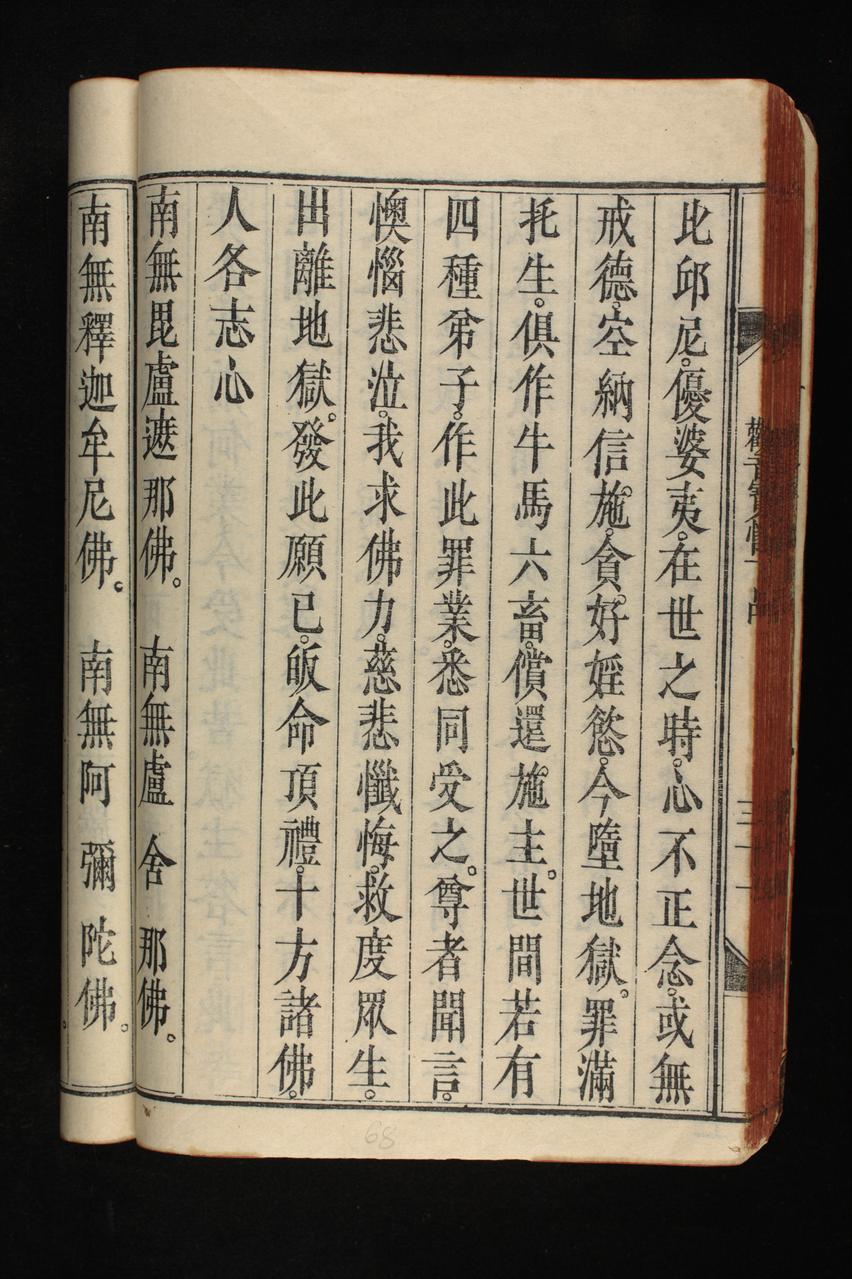 比邱尼。優婆夷。在世之時。心不正念。或無
戒德。空納信施。貪好婬慾。今墮地獄。罪滿
托生。俱作牛馬六畜。償還施主。世間若有
四種弟子。作此罪業。悉同受之。尊者聞言。
懊惱悲泣。我求佛力。慈悲懺悔。救度眾生。
出離地獄。發此願已。皈命頂禮。十方諸佛。
人各志心
南無毘盧遮那佛。 南無盧舍那佛。
南無釋迦牟尼佛。 南無阿彌陀佛。
68